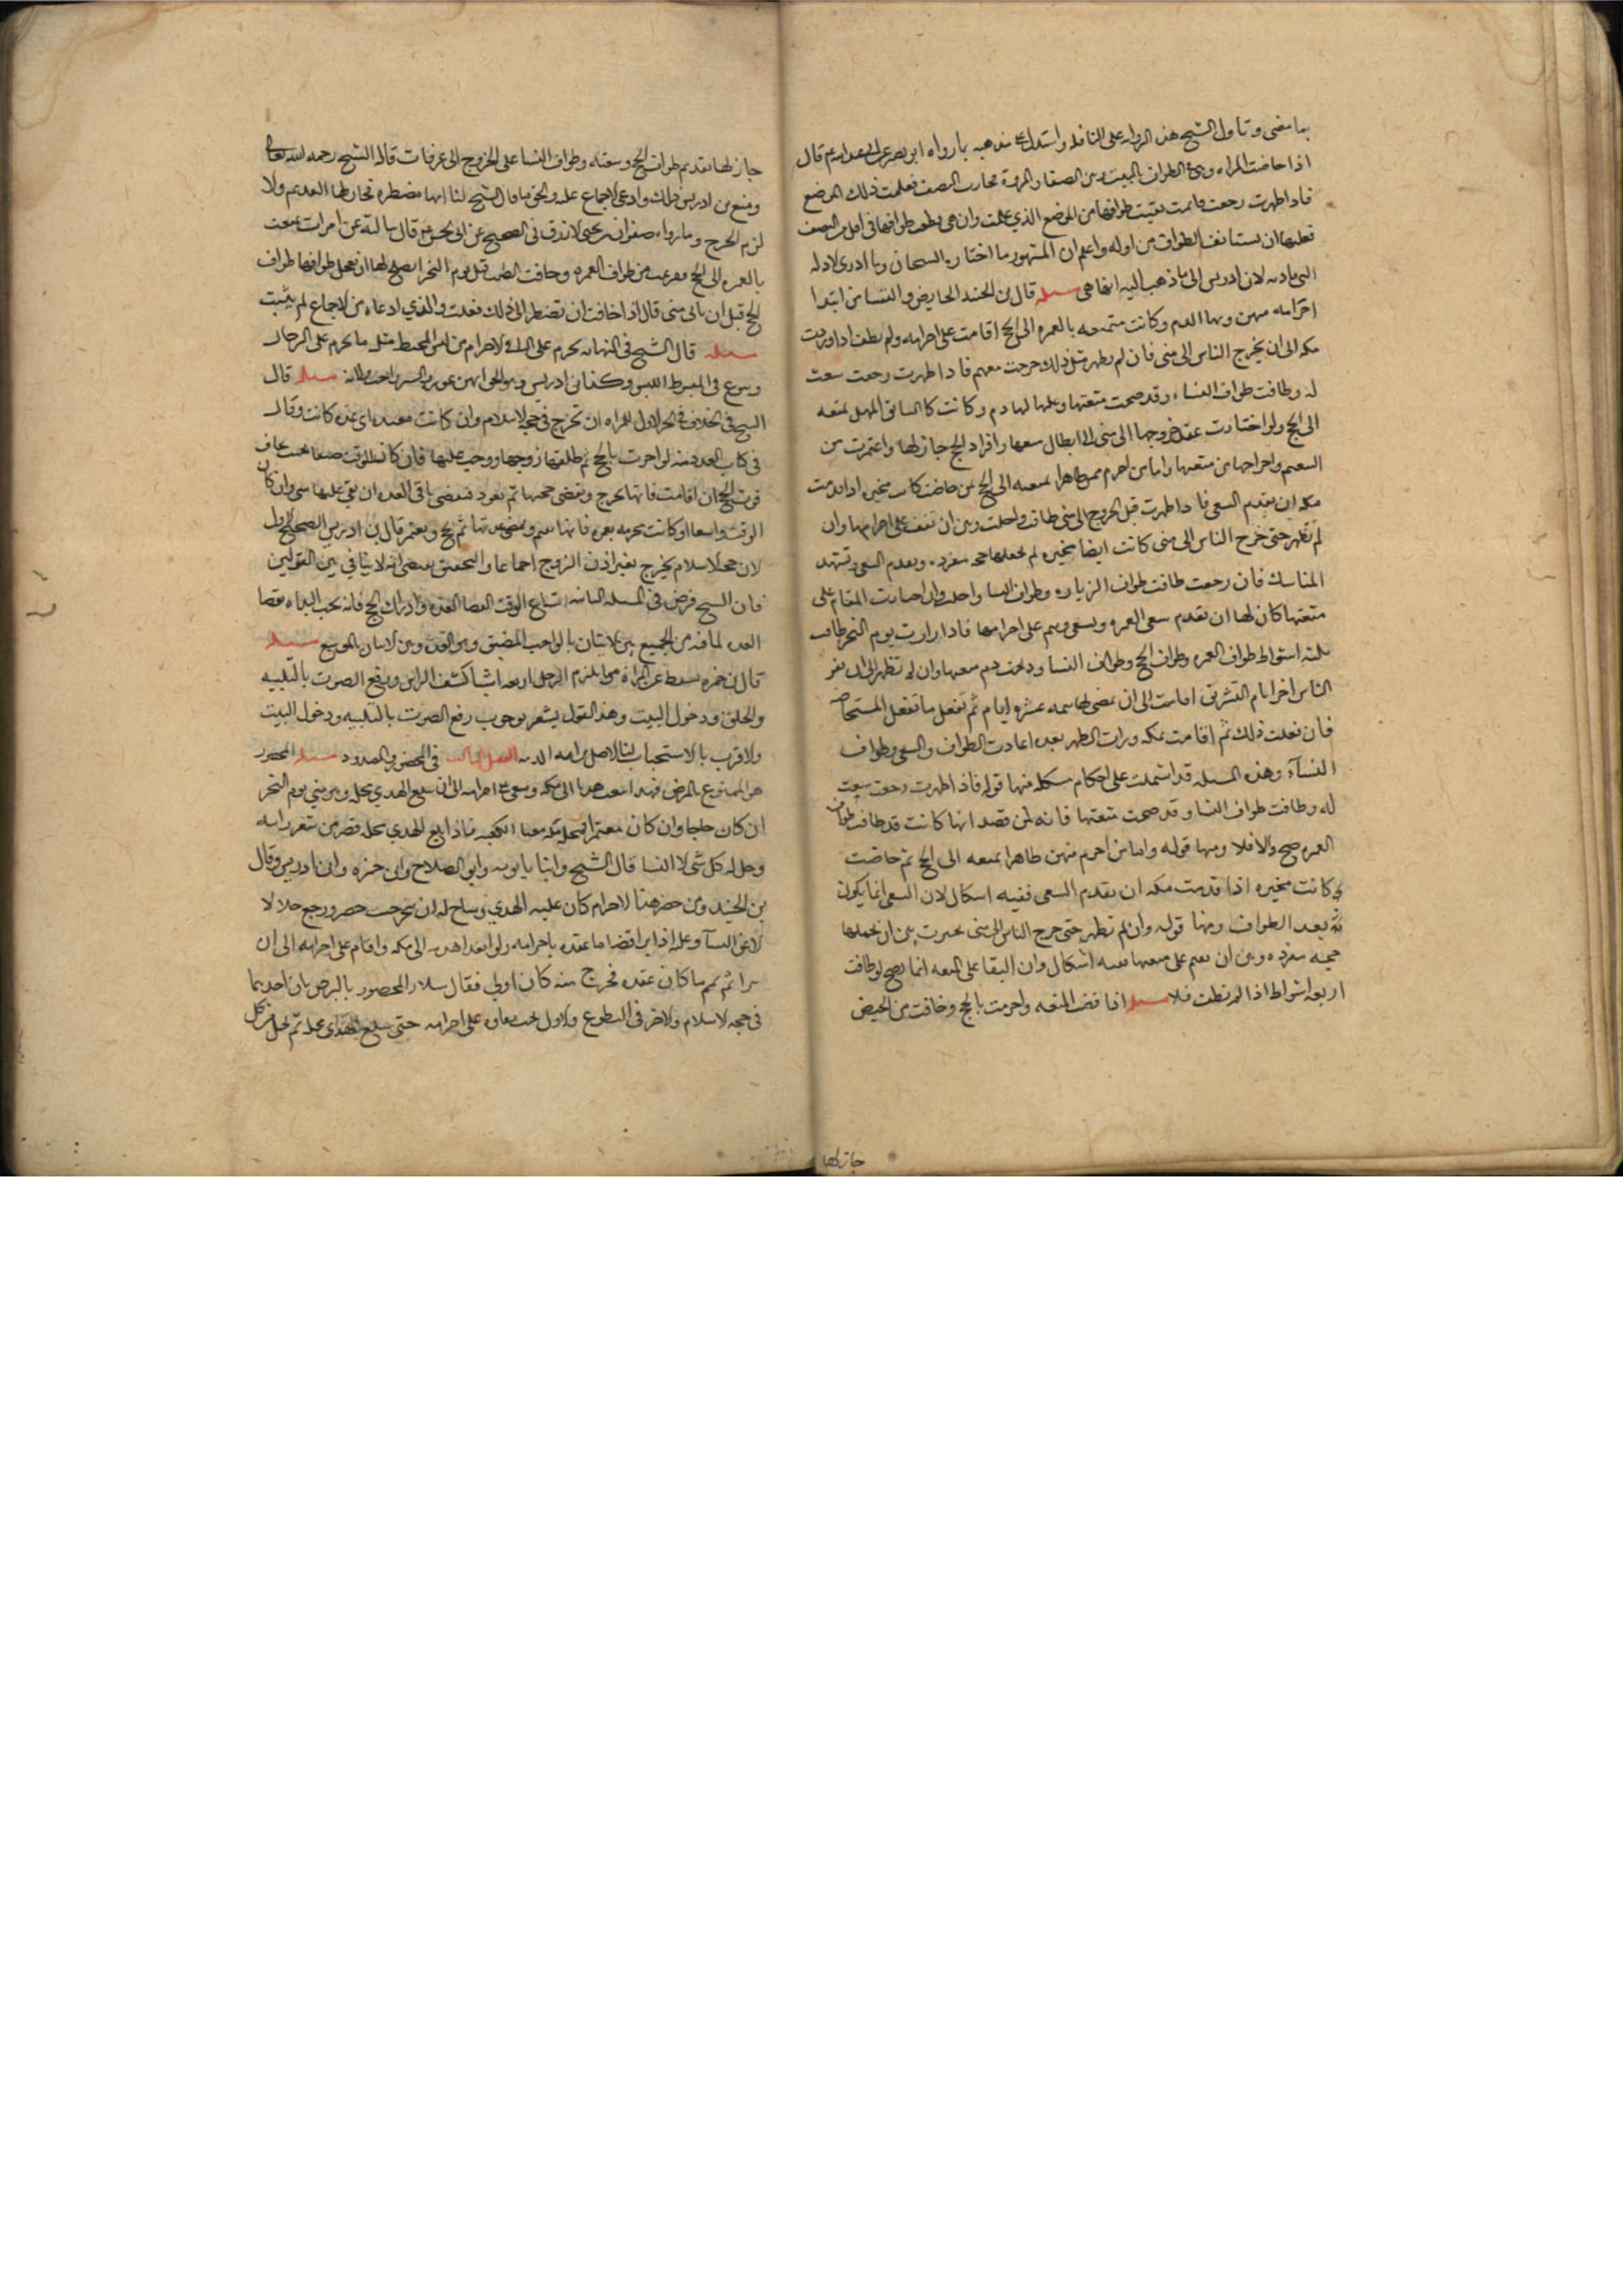 بما مضى وتاول الشيخ هذه الرواية على النافلة واستدل على مذهبه بما رواه ابو بصير عن ابي عبد الله ع قال
اذا حاضت المراه وهي في الطواف بالبيت وبين الصفا والمروة فجازت النصف فعلمت ذلك الموضع
فاذا طهرت رجعت فاتمت بقيت طوافها من الموضع الذي علمت وان هي قطعت طوافها في اقل من النصف
فعليها ان يستانف الطواف من اوله واعلم ان المشهور ما اختاره الشيخان وما ادري الادله
التي بادت لابن ادريس الى ما ذهب اليه ايها هي مسله قال بن الجنيد الحايض والنفسا من ابتدا
احرامه منهن وبها الدم وكانت متمتعه بالعمره الى الحج اقامت على احرامها ولم تطف اذا وردت
مكه الى ان يخرج الناس الى منى فان لم تطهر مثل ذلك خرجت معهم فاذا طهرت رجعت سعت
له وطافت طواف النساء وقد صحت متعتها وعليها لها دم وكانت كالسايق المهل بمتعه
الى الحج ولو اختارت عند خروجها الى منى ابطال متعتها وافراد الحج جاز لها واعتمرت من
التنعيم واخراجها من متعتها واما من احرم منهن طاهرا بمتعه الى الحج ثم حاضت كانت مخيره اذا قدمت
مكه ان يقدم السعي فاذا طهرت قبل الخروج الى منى طافت واحلت وبين ان تقف على احرامها وان
لم تطهر حتى خرج الناس الى منى كانت ايضا مخيره لم تجعلها حجه مفرده وتقدم السعي وتشهد
المناسك فان رجعت طافت طواف الزياره وطواف النسا واحلت وان اختارت المقام على
متعتها كان لها ان تقدم سعي العمره وتسعى وتتم على احرامها فاذا زارت يوم النحر طافت
ثلثه اسواط طواف العمره وطواف الحج وطواف النسا وذبحت دم متعتها وان لم تطهر الى ان نفر
الناس اخر ايام التشريق اقامت الى ان تمضي لها تتمه عشره ايام ثم تفعل ما تفعل المستحاضه
فان فعلت ذلك ثم اقامت بمكه ورات الطهر بعده اعادت الطواف والسعي وطواف
النسآء وهذه المسله قد اشتملت على احكام مشكله منها قوله فاذا طهرت رجعت سعت
له وطافت طواف النسا وقد صحت متعتها فانه ان قصد انها كانت قد طافت طواف
العمره صح والا فلا ومنها قوله واما من احرم منهن طاهرا بمتعه الى الحج ثم حاضت
كانت مخيره اذا قدمت مكه ان تقدم السعي ففيه اشكال لان السعي انما يكون
بعد الطواف ومنها قوله وان لم تطهر حتى خرج الناس الى منى خيرت بين ان تجعلها
حجه مفرده وبين ان تقيم على متعتها ففيه اشكال وان البقا على المتعه انما يصح لو طافت
اربعه اشواط اذا لم تطف فلا مسله اذا قضت المتعه واحرمت بالحج وخافت من الحيض
جاز لها
جاز لها تقديم طواف الحج وسعيه وطواف النسا على الخروج الى عرفات قاله الشيخ رحمه الله تعالى
ومنع بن ادريس ذلك وادعى الاجماع عليه والحق ما قال الشيخ لنا انها مضطره فجاز لها التقديم والا
لزم الحرج وما رواه صفوان بن يحيى الازرق في الصحيح عن ابي الحسن ع قال سالته عن امراة تمتعت
بالعمره الى الحج ففرغت من طواف العمره وخافت الطمث قبل يوم النحر ايصلح لها ان تعجل طوافها طواف
الحج قبل ان ياتي منى قال اذا خافت ان تضطر الى ذلك فعلت والذي ادعاه من الاجماع لم يثبت
مسله قال الشيخ في النهايه يحرم على المراة في الاحرام من لبس المخيط مثل ما يحرم على الرجال
وسوغ في المبسوط اللبس وكذا ابن ادريس وهو الحق مسله قال
الشيخ في الخلاف في الجز الاول للمراه ان تخرج في حجة الاسلام وان كانت معتده اي عده كانت وقال
في كتاب العدد منه لو احرمت بالحج ثم طلقها زوجها ووجب عليها فان كان الوقت ضيقا بحيث تخاف
فوت الحج ان اقامت فانها تخرج وتقضي حجتها ثم تعود فتقضي باقي العده ان بقي عليها شي وان كان
الوقت واسعا او كانت محرمه بعمره فانها تقيم وتقضي عدتها ثم تحج وتعتمر قال بن ادريس الصحيح الاول
لان حجة الاسلام يخرج بغير اذن الزوج اجماعا والتحقيق يقتضي انه لا ينافي بين القولين
فان الشيخ فرض في المسله الثانيه اتساع الوقت لقضا العده وادراك الحج فانه يجب البداه بقضا
العده لما فيه من الجمع بين الاتيان بالواجب المضيق وهو العده وبين الاتيان بالموسع مسله
قال بن حمزه يسقط عن المراة مما يلزم الرجل اربعه اشيا كشف الراس ورفع الصوت بالتلبيه
والحلق ودخول البيت وهذا القول يشعر بوجوب رفع الصوت بالتلبيه ودخول البيت
والاقرب بالاستحباب لنا الاصل براءه الذمه الفصل الثالث في المحصور والمصدود مسله المحصور
هو الممنوع بالمرض فهذا يبعث هديا الى مكه ويبقى على احرامه الى ان يبلغ الهدي محله وهو منى يوم النحر
ان كان حاجا وان كان معتمرا فمحله مكه بفنا الكعبه فاذا بلغ الهدي محله قصر من شعر راسه
وحل له كل شي الا النسا قال الشيخ وابنا بابويه وابو الصلاح وابن حمزه وابن ادريس وقال
بن الجنيد ومن حضر هذا الاحرام كان عليه الهدي ومباح له ان يخرج حيث حصر ورجع حلالا لا
الا من النسآ وعليه اذا برا قضا ما عقده باحرامه ولو انفذ هديه الى مكه واقام على احرامه الى ان
يبرا ثم تمم ما كان عقده فخرج منه كان اولى فقال سلار المحصور بالمرض بان احدهما
في حجه الاسلام والاخر في التطوع والاول يجب بقاوه على احرامه حتى يبلغ الهدي محله ثم يحل من كل